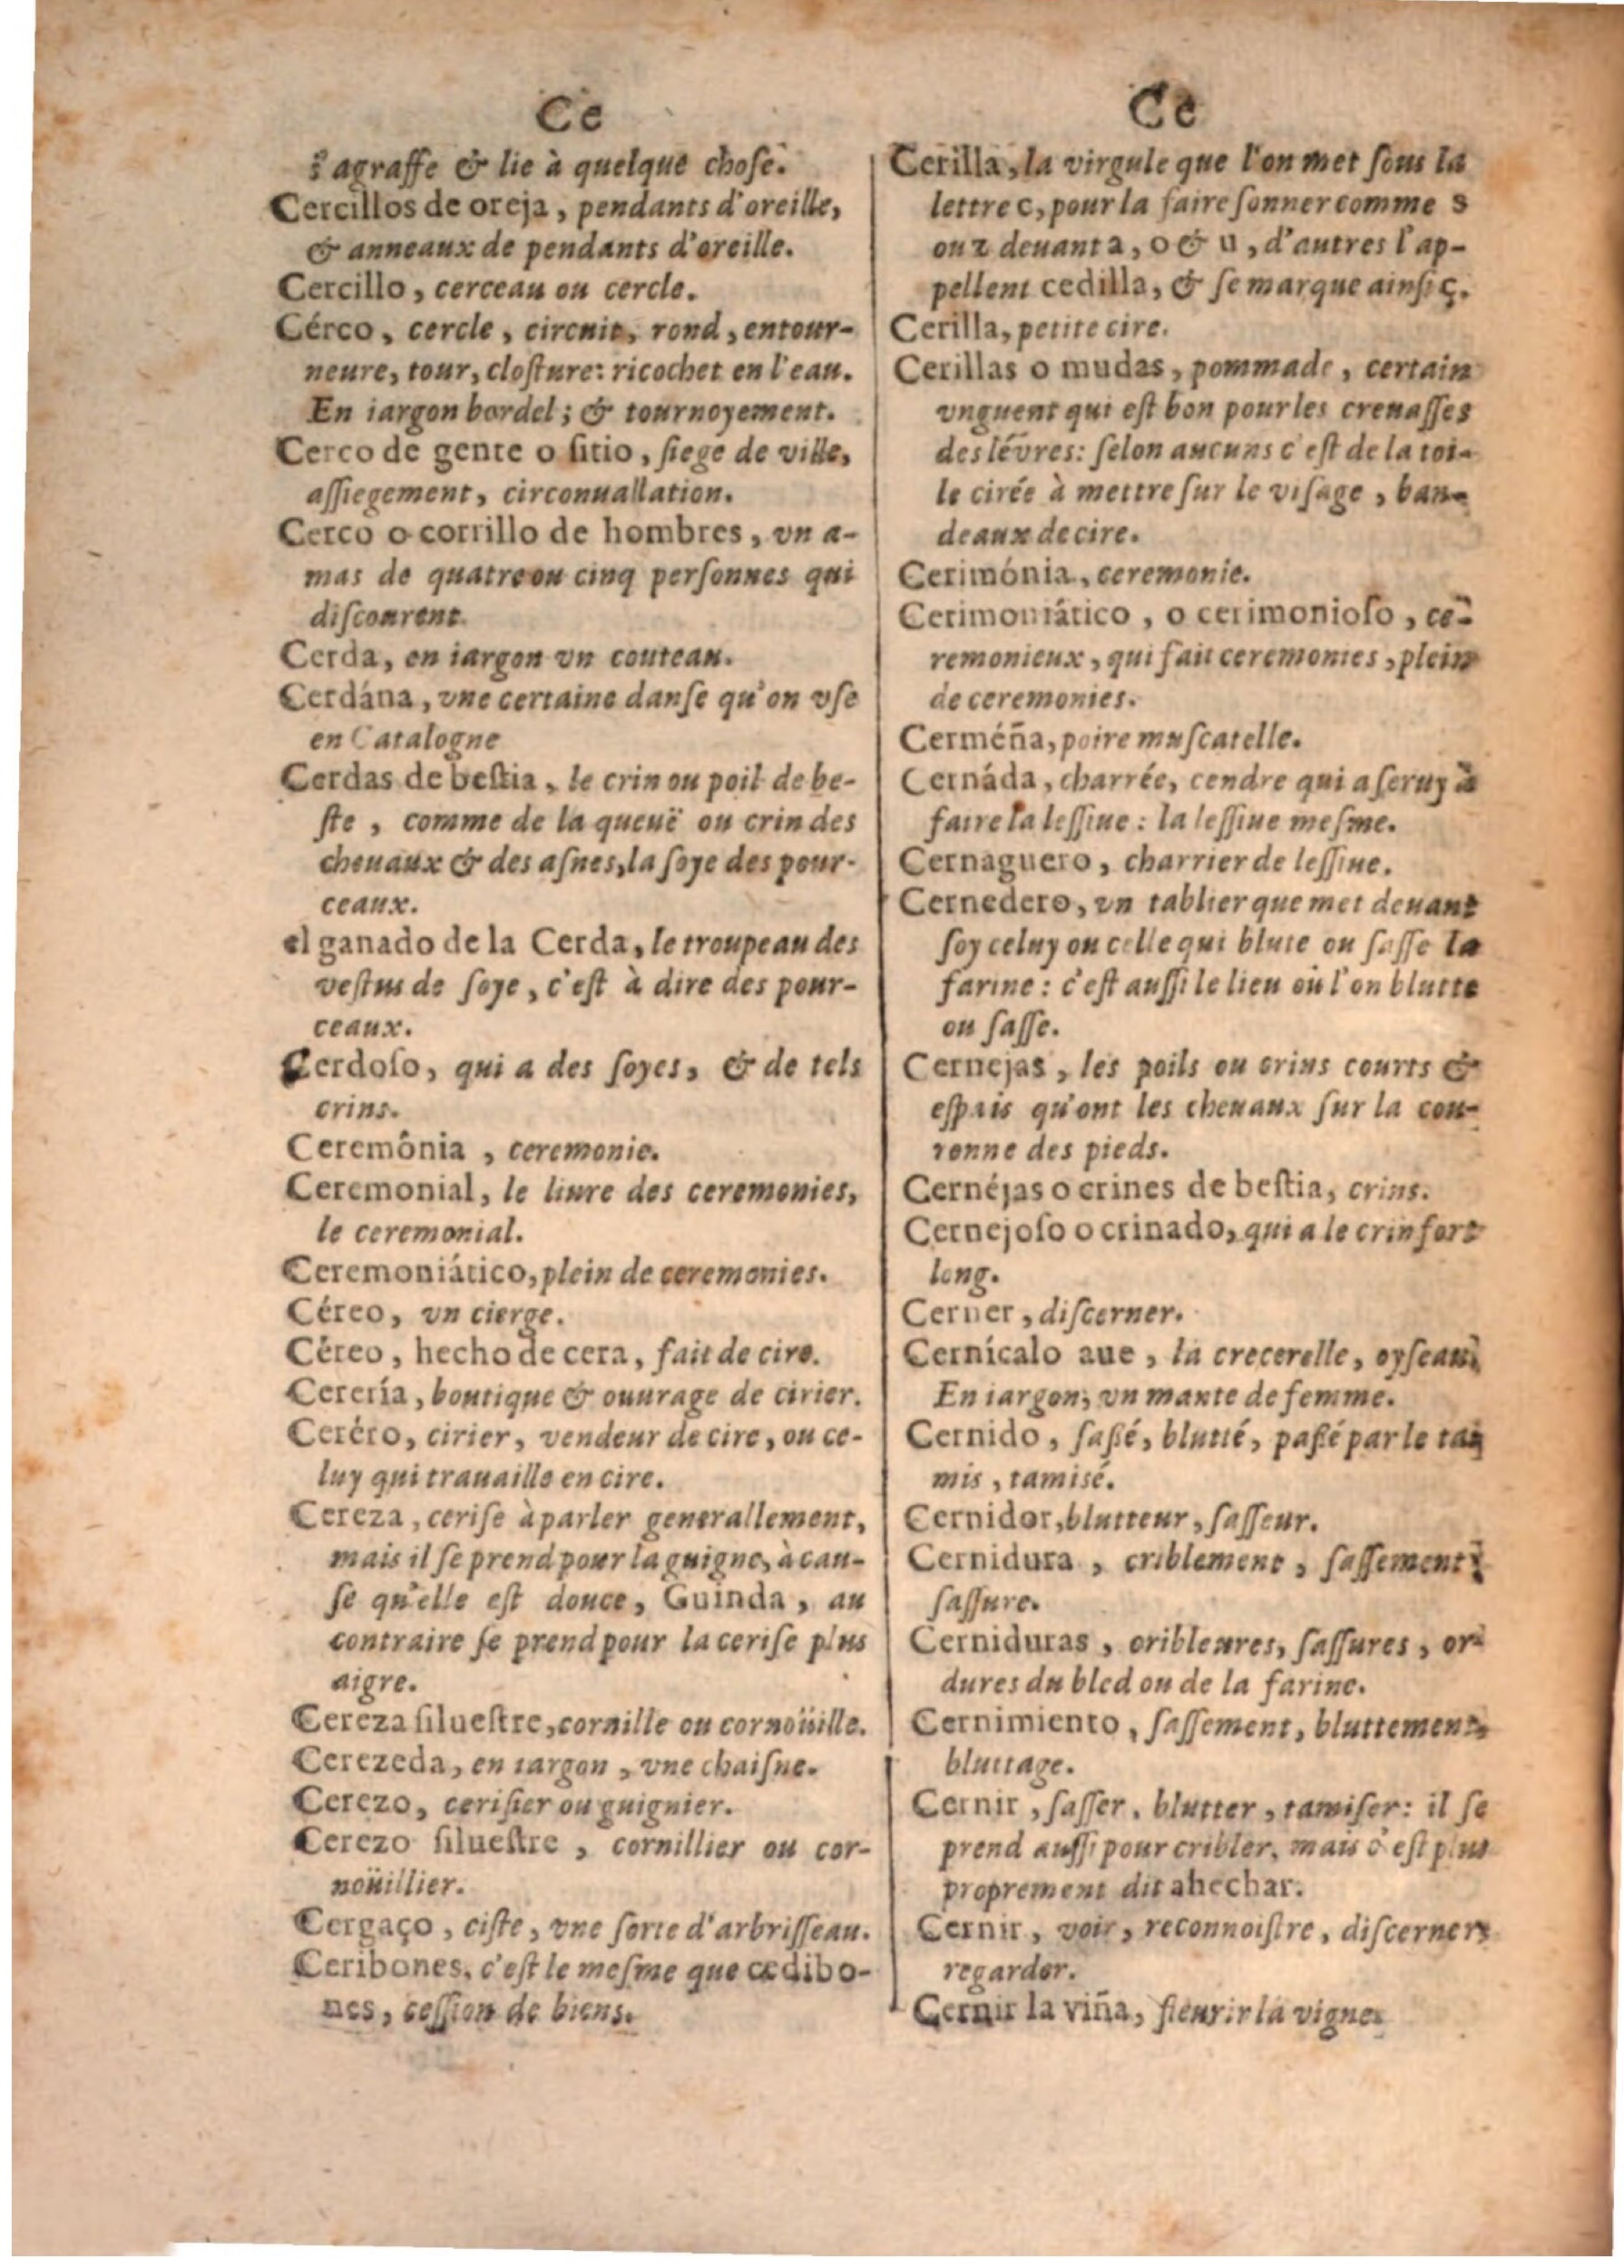 Ce
s'agraffe & lie à quelque choſe.
Cercillos de oreja, pendants d'oreille,
& anneaux de pendants d'oreille.
Cercillo, cerceau ou cercle.
Cérco, cercle, circuit, rond, entour-
neure, tour, cloſture: ricochet en l'eau.
En iargon bordel; & tournoyement.
Cerco de gente o ſitio, ſiege de ville,
aſſiegement, circonuallation.
Cerco o corrillo de hombres, vn a-
mas de quatre ou cinq perſonnes qui
diſcourent.
Cerda, en iargon vn couteau.
Cerdána, vne certaine danſe qu'on vſe
en Catalogne
Cerdas de beſtia, le crin ou poil de be-
ſte, comme de la queuë ou crin des
cheuaux & des aſnes, la ſoye des pour-
ceaux.
el ganado de la Cerda, le troupeau des
veſtus de ſoye, c'eſt à dire des pour-
ceaux.
Cerdoſo, qui a des ſoyes, & de tels
crins.
Ceremônia, ceremonie.
Ceremonial, le liure des ceremonies,
le ceremonial.
Ceremoniático, plein de ceremonies.
Céreo, vn cierge.
Céreo, hecho de cera, fait de cire.
Cerería, boutique & ouurage de cirier.
Ceréro, cirier, vendeur de cire, ou ce-
luy qui trauaille en cire.
Cereza, ceriſe à parler generallement,
mais il ſe prend pour la guigne, à cau-
ſe qu'elle eſt douce, Guinda, au
contraire ſe prend pour la ceriſe plus
aigre.
Cereza ſilueſtre, cornille ou cornoüille.
Cerezeda, en iargon, vne chaiſne.
Cerezo, ceriſier ou guignier.
Cerezo ſilueſtre, cornillier ou cor-
noüillier.
Cergaço, ciſte, vne ſorte d'arbriſſeau.
Ceribones, c'eſt le meſme que cedibo-
nes, ceſſion de biens.
Ce
Cerilla, la virgule que l'on met ſous la
lettre c, pour la faire ſonner comme s
ou z deuant a, o & u, d'autres l'ap-
pellent cedilla, & ſe marque ainſi ç.
Cerilla, petite cire.
Cerillas o mudas, pommade, certain
vnguent qui eſt bon pour les creuaſſes
des lévres: ſelon aucuns c'eſt de la toi-
le cirée à mettre ſur le viſage, ban-
deaux de cire.
Cerimónia, ceremonie.
Cerimoniático, o cerimonioſo, ce-
remonieux, qui fait ceremonies, plein
de ceremonies.
Cerméña, poire muſcatelle.
Cernáda, charrée, cendre qui a ſeruy à
faire la leſſiue: la leſſiue meſme.
Cernaguero, charrier de leſſiue.
Cernedero, vn tablier que met deuant
ſoy celuy ou celle qui blute ou ſaſſe la
farine: c'eſt auſſi le lieu où l'on blutte
ou ſaſſe.
Cernejas, les poils ou crins courts &
eſpais qu'ont les cheuaux ſur la cou-
ronne des pieds.
Cernéjas o crines de beſtia, crins.
Cernejoſo o crinado, qui a le crin fort
long.
Cerner, diſcerner.
Cernícalo aue, la crecerelle, oyſeau.
En iargon, vn mante de femme.
Cernido, ſaßé, blutté, paßé par le ta-
mis, tamisé.
Cernidor, blutteur, ſaſſeur.
Cernidura, criblement, ſaſſement,
ſaſſure.
Cerniduras, cribleures, ſaſſures, or-
dures du bled ou de la farine.
Cernimiento, ſaſſement, bluttement,
bluttage.
Cernir, ſaſſer, blutter, tamiſer: il ſe
prend auſſi pour cribler, mais c'eſt plus
proprement dit ahechar.
Cernir, voir, reconnoiſtre, diſcerner,
regarder.
Cernir la viña, fleurir la vigne.